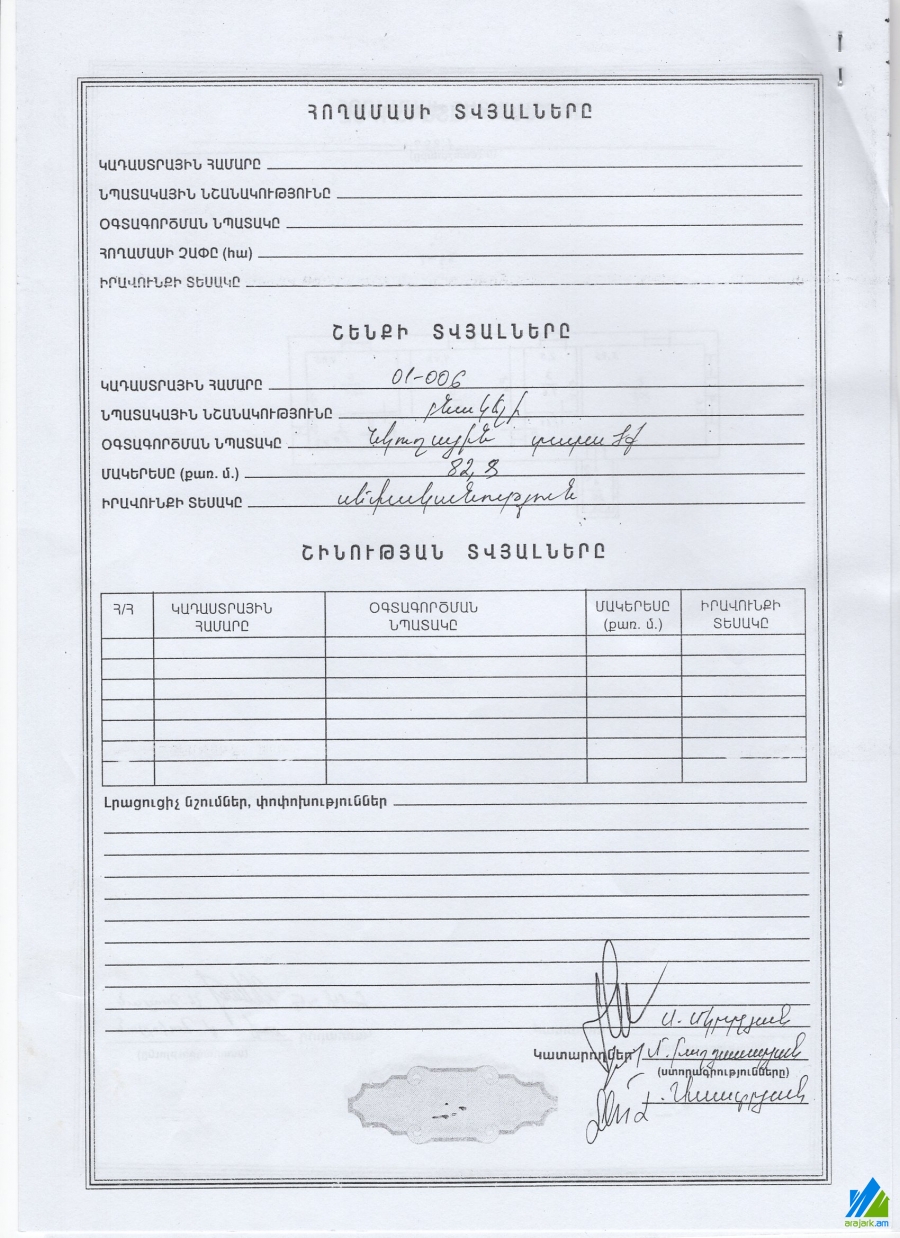 ՀՈՂԱՄԱՍԻ ՏՎՅԱԼՆԵՐԸ
ԿԱԴԱՍՏՐԱՅԻՆ ՀԱՄԱՐԸ
ՆՊԱՏԱԿԱՅԻՆ ՆՇԱՆԱԿՈՒԹՅՈՒՆԸ
ՕԳՏԱԳՈՐԾՄԱՆ ՆՊԱՏԱԿԸ
ՀՈՂԱՄԱՍԻ ՉԱՓԸ (հա)
ԻՐԱՎՈՒՆՔԻ ՏԵՍԱԿԸ
ՇԵՆՔԻ ՏՎՅԱԼՆԵՐԸ
ԿԱԴԱՍՏՐԱՅԻՆ ՀԱՄԱՐԸ 01-006
ՆՊԱՏԱԿԱՅԻՆ ՆՇԱՆԱԿՈՒԹՅՈՒՆԸ բնակելի
ՕԳՏԱԳՈՐԾՄԱՆ ՆՊԱՏԱԿԸ նկուղային տարածք
ՄԱԿԵՐԵՍԸ (քառ. մ.) 82,8
ԻՐԱՎՈՒՆՔԻ ՏԵՍԱԿԸ սեփականություն
ՇԻՆՈՒԹՅԱՆ ՏՎՅԱԼՆԵՐԸ
Հ/Հ ԿԱԴԱՍՏՐԱՅԻՆ ՀԱՄԱՐԸ ՕԳՏԱԳՈՐԾՄԱՆ ՆՊԱՏԱԿԸ ՄԱԿԵՐԵՍԸ (քառ. մ.) ԻՐԱՎՈՒՆՔԻ ՏԵՍԱԿԸ
Լրացուցիչ նշումներ, փոփոխություններ
Ա. Մկրտչյան
Կատարողներ Մ. Բաղդասարյան
(ստորագրությունները)
arajark.am